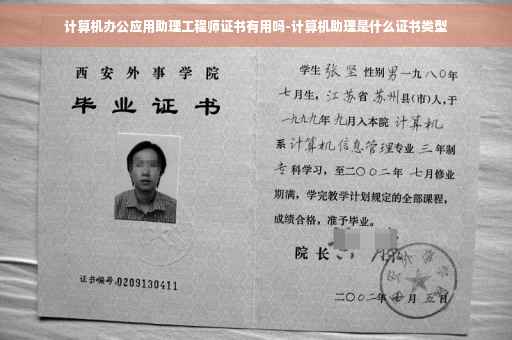 计算机办公应用助理工程师证书有用吗-计算机助理是什么证书类型
西安外事学院
毕业证书
证书编号:0209130411
学生 张坚 性别男一九八〇年
七月生,江苏省苏州县(市)人,于
一九九九年九月入本院 计算机
系计算机信息管理专业 三年制
专科学习,至二〇〇二年 七月修业
期满,学完教学计划规定的全部课程,
成绩合格,准予毕业。
院长
二〇〇二年 月五日